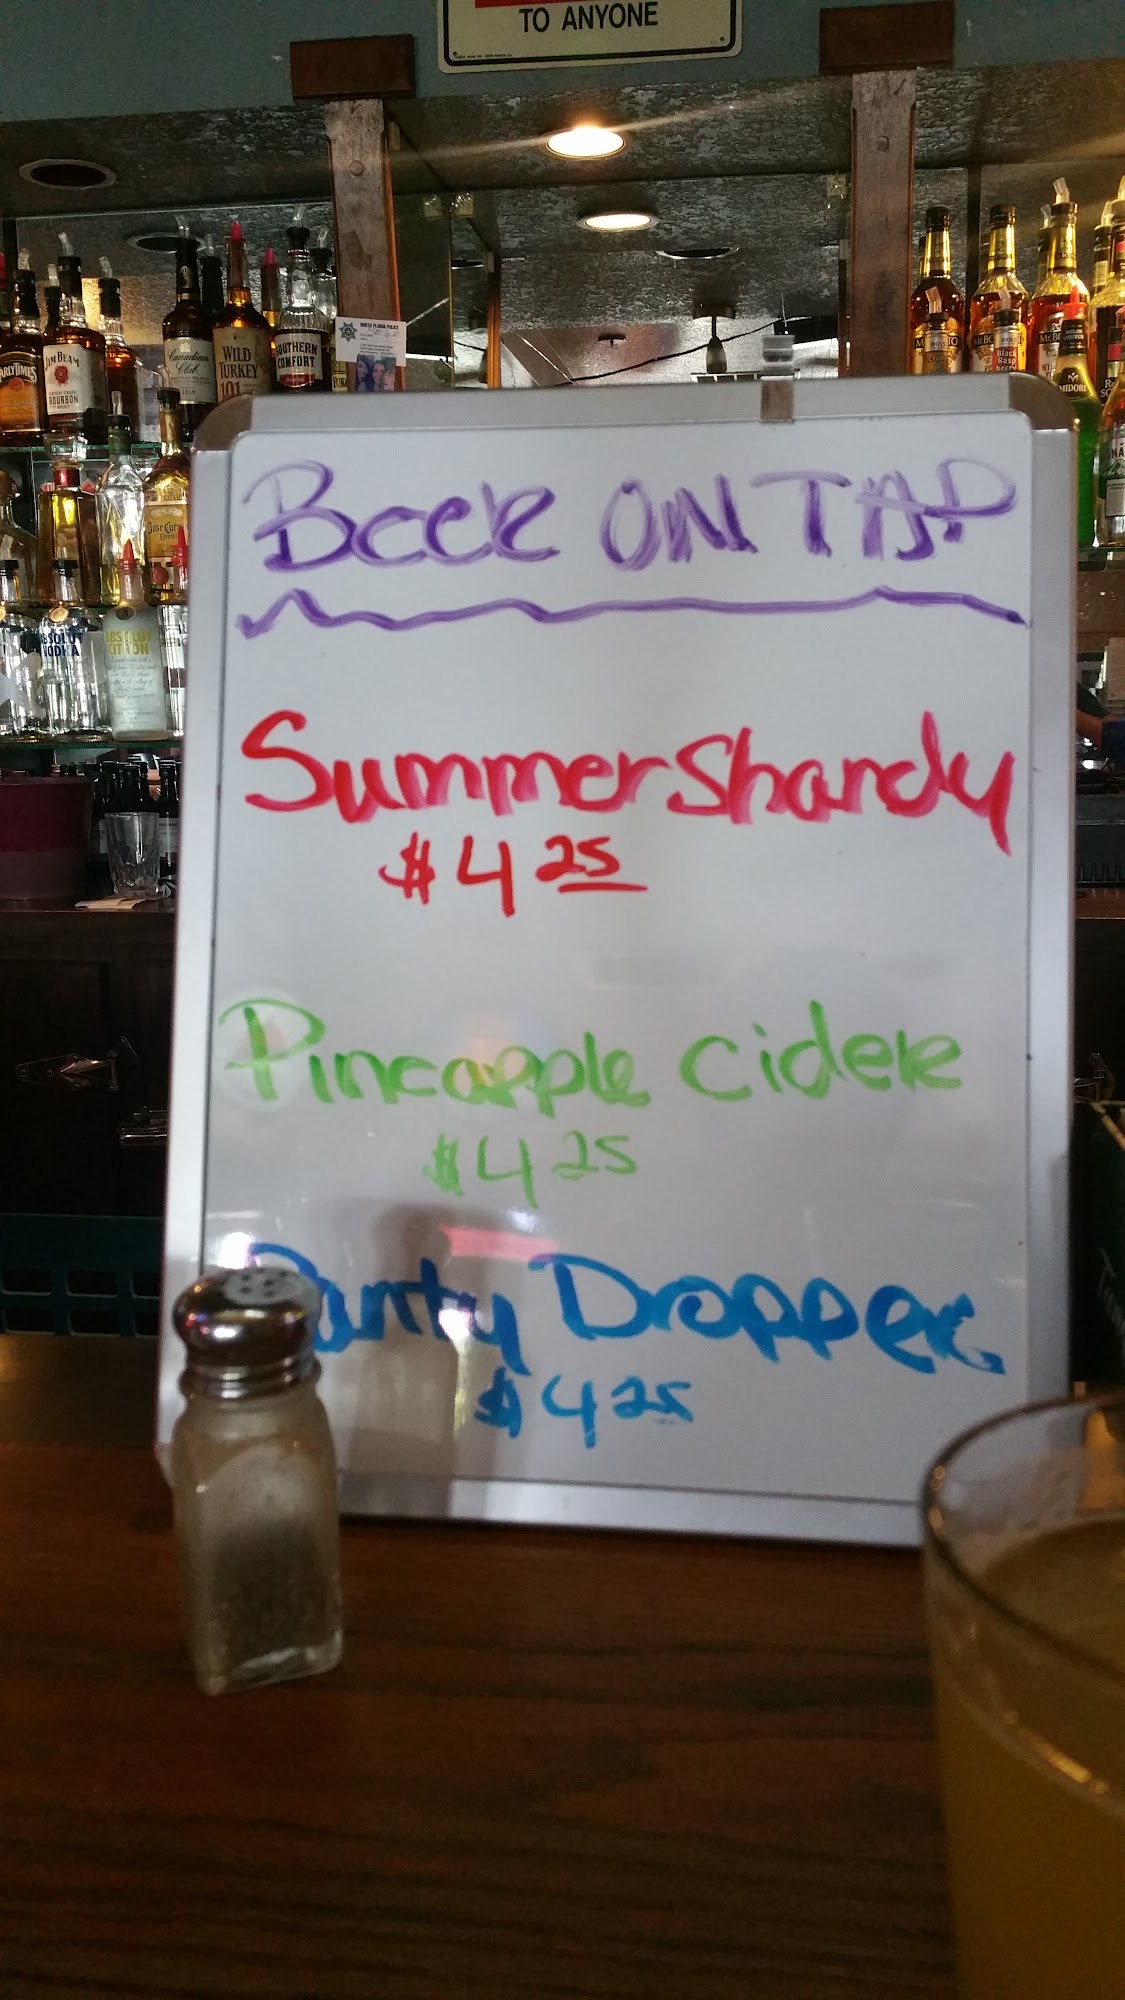 TO ANYONE
JIM BEAM
BOURBON
Canadian
Club
WILD
TURKEY
101
SOUTHERN
COMFORT
NORTH PLAINS POLICE
Black
MIDORI
ABSOLUT
VODKA
ABSOLUT
CITRON
BEER ON TAP
Summer Shandy
$4 25
Pineapple Cider
$4 25
Panty Dropper
$4 25